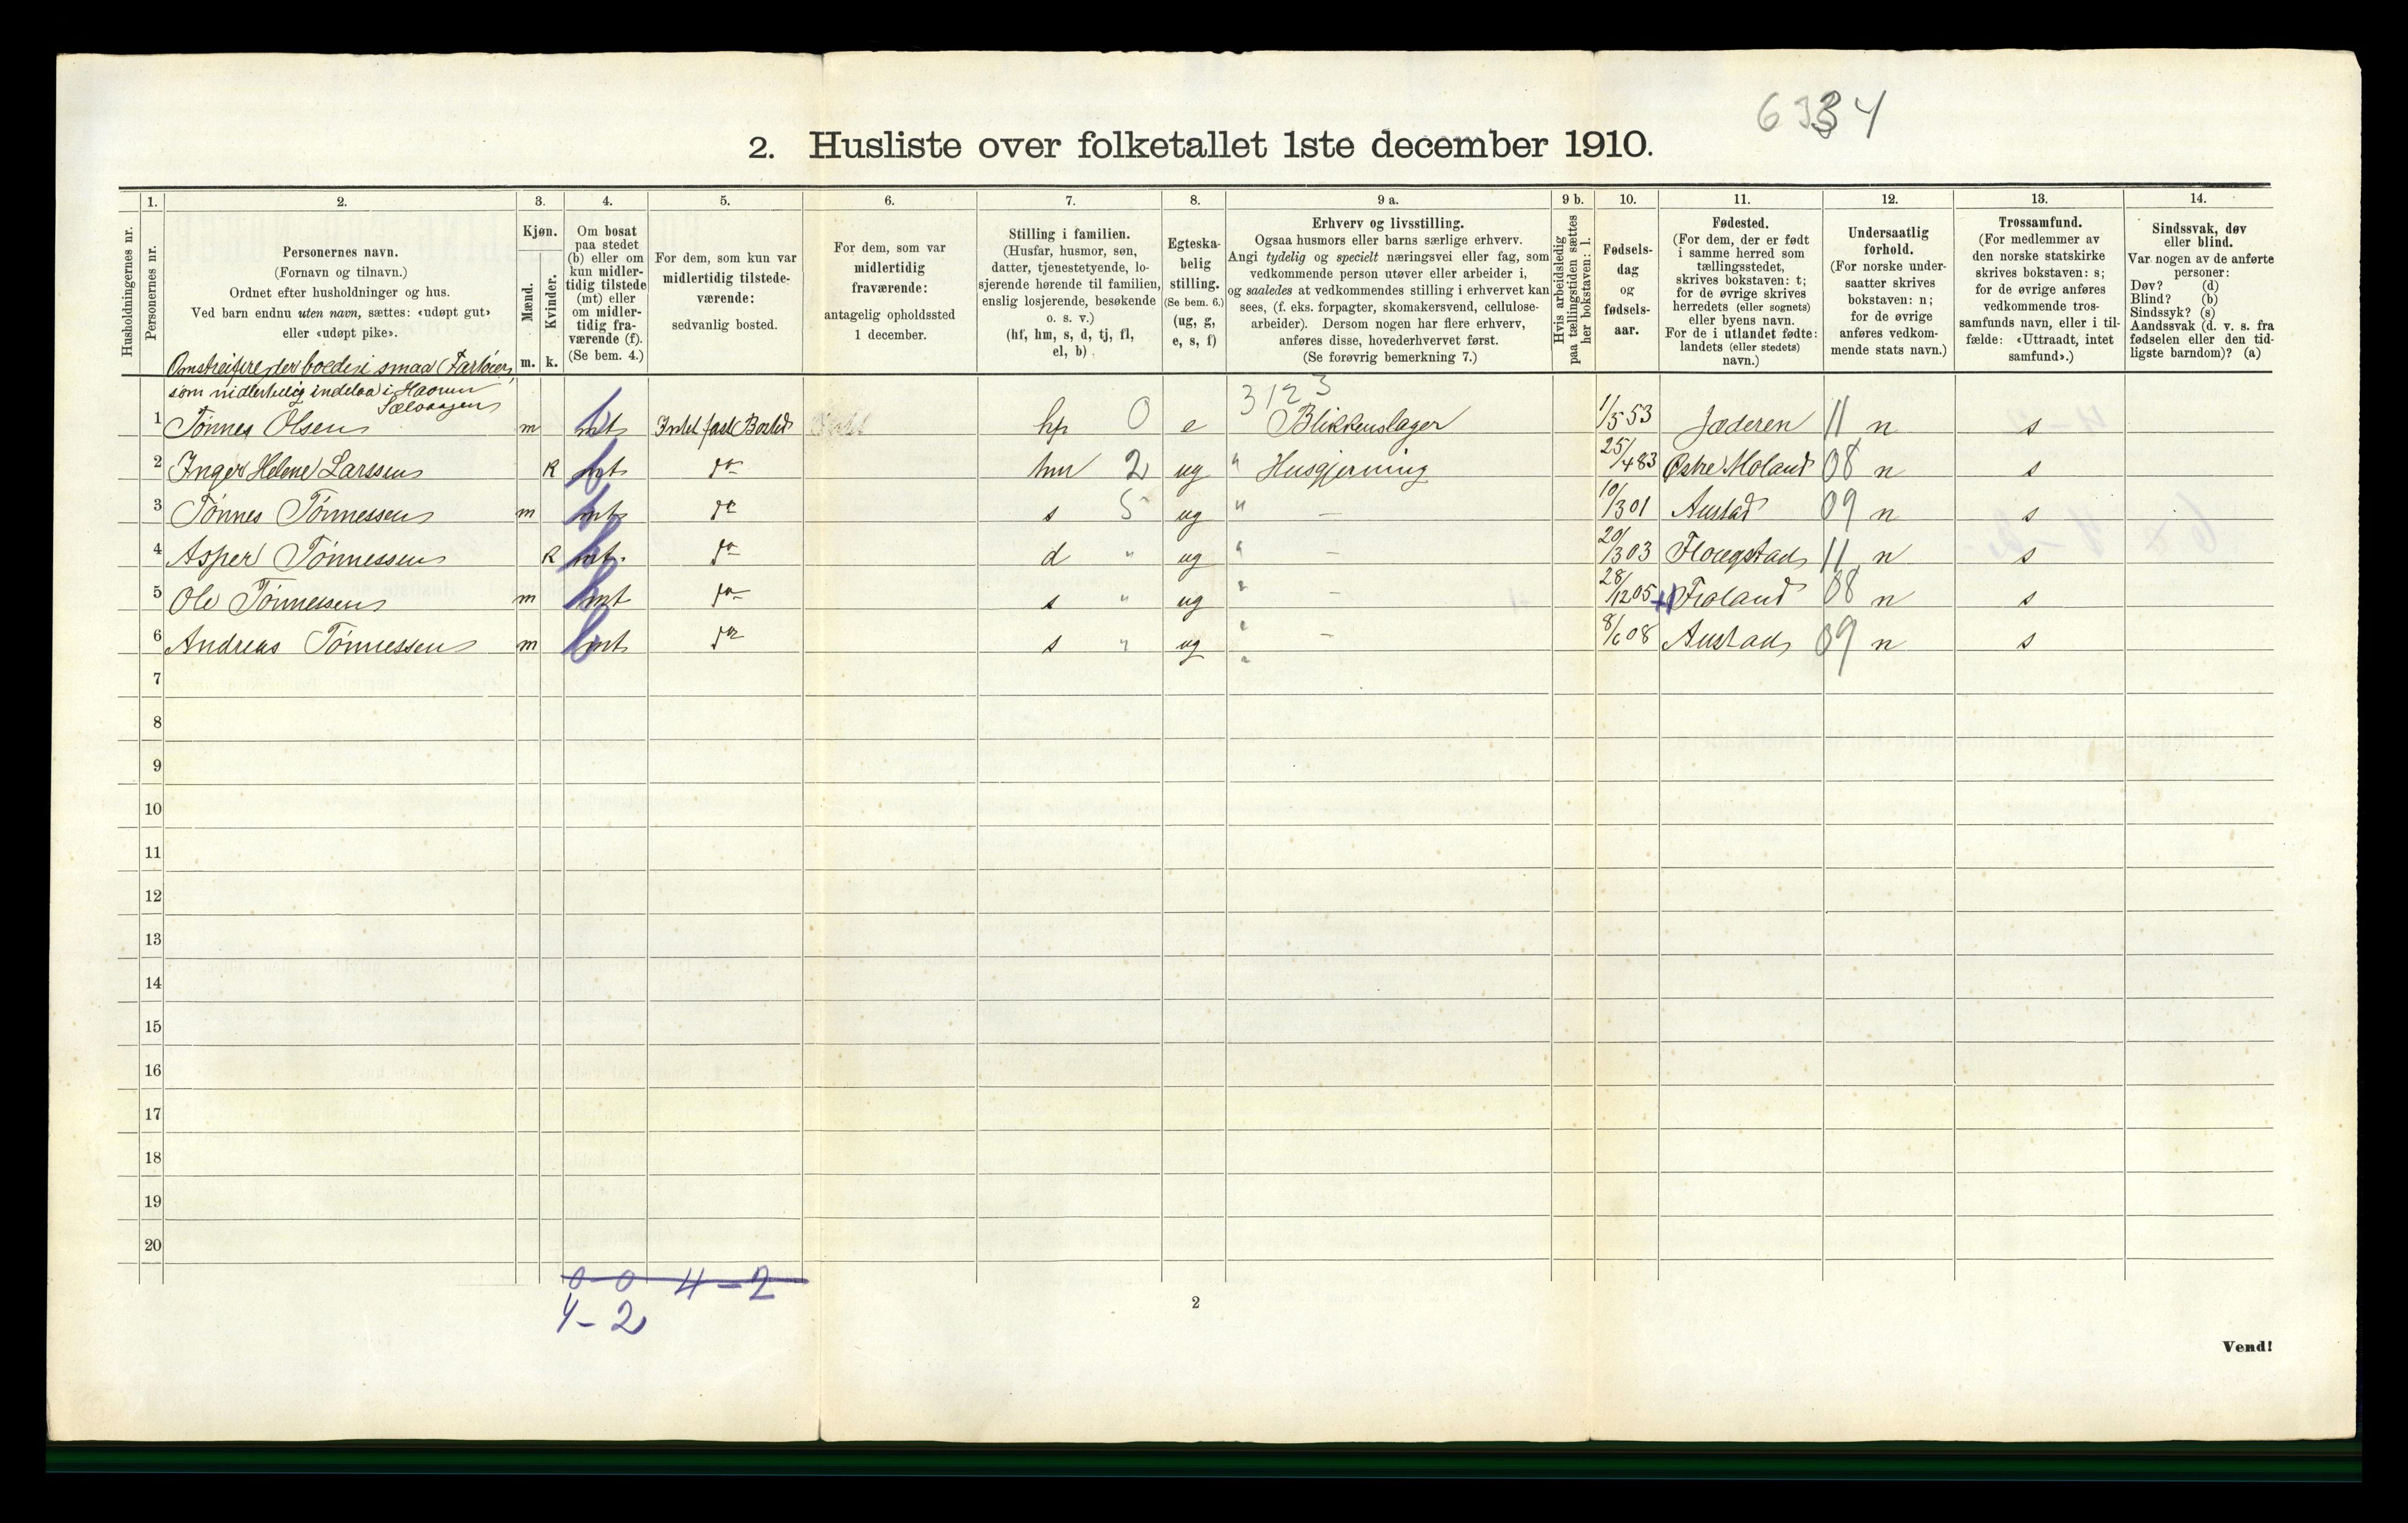 6334
2. Husliste over folketallet 1ste december 1910.
Husholdningernes nr.
1. Personernes nr.
2. Personernes navn.
(Fornavn og tilnavn.)
Ordnet efter husholdninger og hus.
Ved barn endnu uten navn, sættes: «udøpt gut»
eller «udøpt pike».
3. Kjøn.
Mænd. Kvinder.
m. k.
4. Om bosat
paa stedet
(b) eller om
kun midler-
tidig tilstede
(mt) eller
om midler-
tidig fra-
værende (f).
(Se bem. 4.)
5. For dem, som kun var
midlertidig tilstede-
værende:
sedvanlig bosted.
6. For dem, som var
midlertidig
fraværende:
antagelig opholdssted
1 december.
7. Stilling i familien.
(Husfar, husmor, søn,
datter, tjenestetyende, lo-
sjerende hørende til familien,
enslig losjerende, besøkende
o. s. v.)
(hf, hm, s, d, tj, fl,
el, b)
8. Egteska-
belig
stilling.
(Se bem. 6.)
(ug, g,
e, s, f)
9 a. Erhverv og livsstilling.
Ogsaa husmors eller barns særlige erhverv.
Angi tydelig og specielt næringsvei eller fag, som
vedkommende person utøver eller arbeider i,
og saaledes at vedkommendes stilling i erhvervet kan
sees, (f. eks. forpagter, skomakersvend, cellulose-
arbeider). Dersom nogen har flere erhverv,
anføres disse, hovederhvervet først.
(Se forøvrig bemerkning 7.)
9 b. Hvis arbeidsledig
paa tællingstiden sættes
her bokstaven: l.
10. Fødsels-
dag
og
fødsels-
aar.
11. Fødested.
(For dem, der er født
i samme herred som
tællingsstedet,
skrives bokstaven: t;
for de øvrige skrives
herredets (eller sognets)
eller byens navn.
For de i utlandet fødte:
landets (eller stedets)
navn.)
12. Undersaatlig
forhold.
(For norske under-
saatter skrives
bokstaven: n;
for de øvrige
anføres vedkom-
mende stats navn.)
13. Trossamfund.
(For medlemmer av
den norske statskirke
skrives bokstaven: s;
for de øvrige anføres
vedkommende tros-
samfunds navn, eller i til-
fælde: «Uttraadt, intet
samfund».)
14. Sindssvak, døv
eller blind.
Var nogen av de anførte
personer:
Døv? (d)
Blind? (b)
Sindssyk? (s)
Aandssvak (d. v. s. fra
fødselen eller den tid-
ligste barndom)? (a)
Omstreifere der boede i smaa Fartøier,
som midlertidig indelaa i Havnen
3123
1 Tønnes Olsen m mt Intet fast Bosted hf 0 e Blikkenslager 1/5 53 Jæderen 11 n s
2 Inger Helene Larssen k mt do hm 2 ug " Husgjerning 25/4 83 Østre Moland 08 n s
3 Tønnes Tønnessen m mt do s 5 ug " — 10/3 01 Austad 09 n s
4 Asper Tønnessen k mt. do d " ug " — 20/3 03 11 n s
5 Ole Tønnessen m mt do s " ug " — 28/12 05 Froland 08 n s
6 Andreas Tønnessen m mt do s " ug " — 8/6 08 Austad 09 n s
7
8
9
10
11
12
13
14
15
16
17
18
19
20
0 0 4-2
4-2
2
Vend!